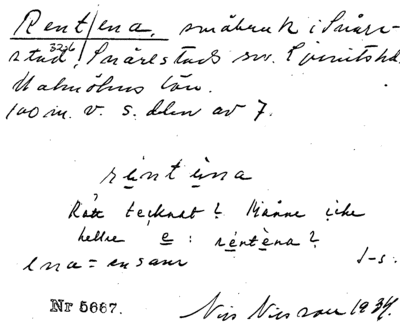 Rent/ena, småbruk i Snåre-
stad 3226, Snårestads sn. Ljunits hd.
Malmöhus län.
100 m. v. s. delen av 7.
rent ena
Rätt tecknat? Månne icke
hellre e : réntèna?
ena = ensam J-s.
Nr 5667. Nils Nilsson 1934.